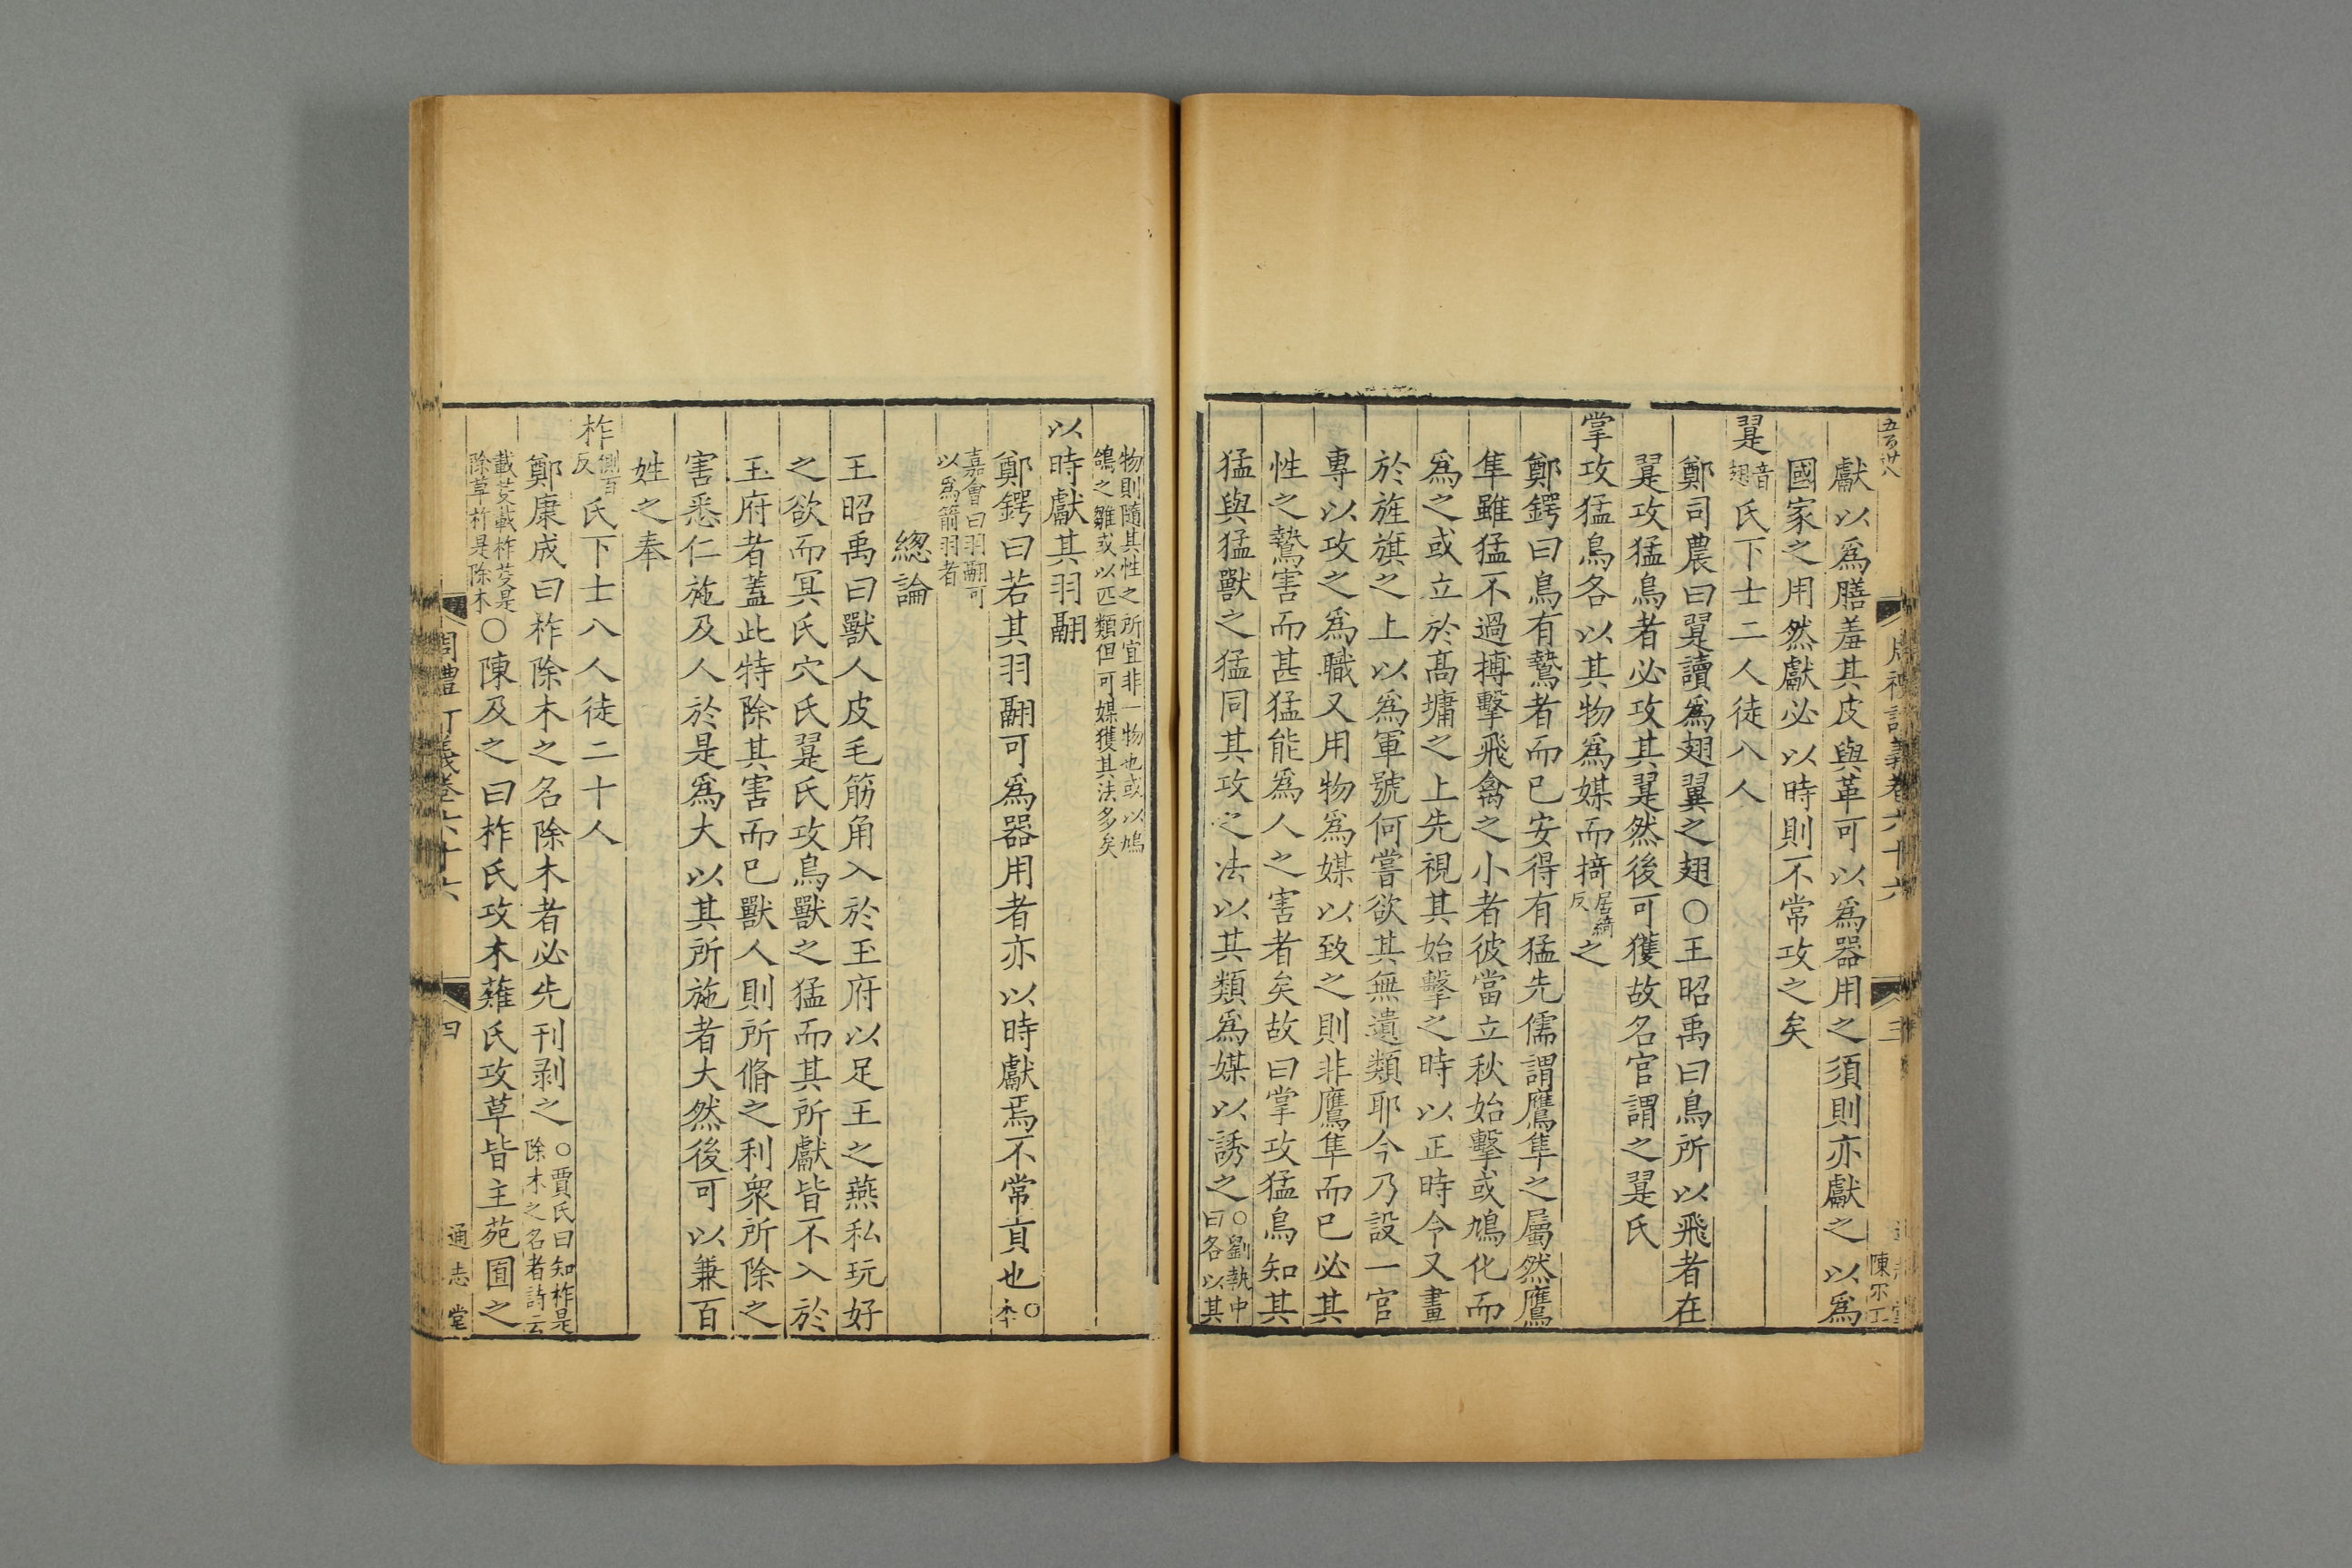 五百卅八
陳不工
獻以爲膳羞其皮與革可以爲器用之須則亦獻之以爲
國家之用然獻必以時則不常攻之矣
翨音翅氏下士二人徒八人
鄭司農曰翨讀爲翅翼之翅○王昭禹曰鳥所以飛者在
翨攻猛鳥者必攻其翨然後可獲故名官謂之翨氏
掌攻猛鳥各以其物爲媒而掎居綺反之
鄭鍔曰鳥有鷙者而已安得有猛先儒謂鷹隼之屬然鷹
隼雖猛不過搏擊飛禽之小者彼當立秋始擊或鳩化而
爲之或立於髙墉之上先視其始擊之時以正時令又畫
於旌旗之上以爲軍號何嘗欲其無遺類耶今乃設一官
專以攻之爲職又用物爲媒以致之則非鷹隼而已必其
性之鷙害而甚猛能爲人之害者矣故曰掌攻猛鳥知其
猛與猛獸之猛同其攻之法以其類爲媒以誘之○劉執中
曰各以其
物則隨其性之所宜非一物也或以鳩
鴿之雛或以匹類但可媒獲其法多矣
以時獻其羽翮
鄭鍔曰若其羽翮可爲器用者亦以時獻焉不常貢也○
李
嘉會曰羽翮可
以爲箭羽者
緫論
王昭禹曰獸人皮毛筋角入於玉府以足王之燕私玩好
之欲而冥氏穴氏翨氏攻鳥獸之猛而其所獻皆不入於
玉府者蓋此特除其害而已獸人則所脩之利衆所除之
害悉仁施及人於是爲大以其所施者大然後可以兼百
姓之奉
柞側百反氏下士八人徒二十人
鄭康成曰柞除木之名除木者必先刊剥之○賈氏曰知柞是
除木之名者詩云
載芟載柞芟是
除草柞是除木○陳及之曰柞氏攻木薙氏攻草皆主苑囿之
四
通志堂